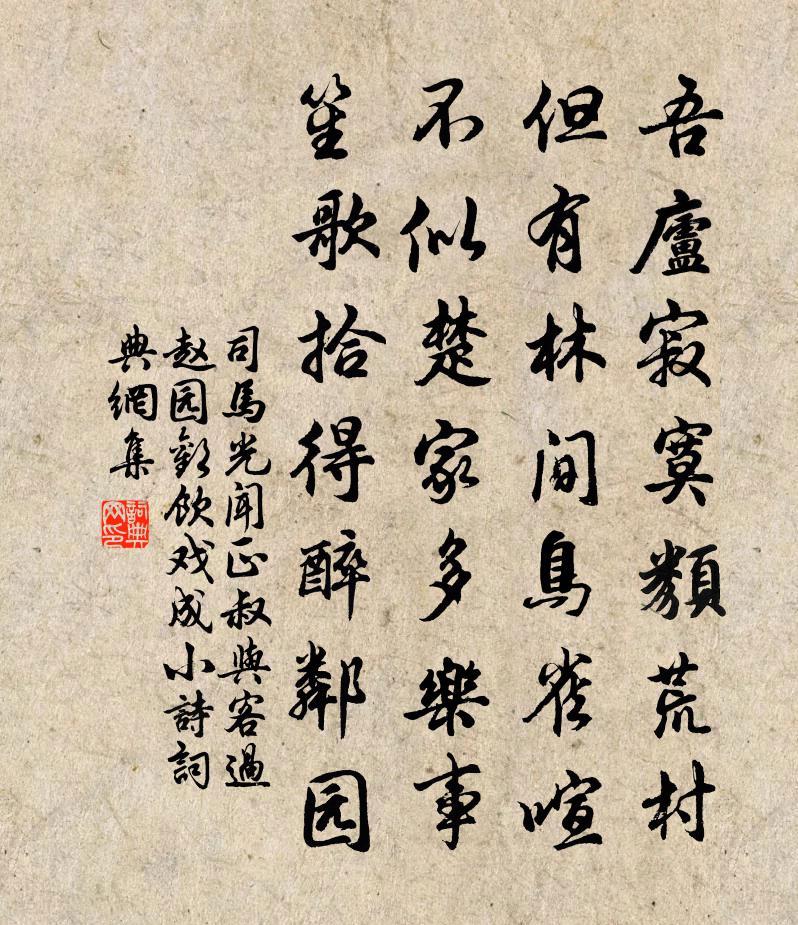 吾廬寂寞類荒村
但有林間鳥雀喧
不似楚家多樂事
笙歌拾得醉鄰园
司馬光闻正叔與客過
赵园歡饮戏成小詩詞
典網集
詞典
网印